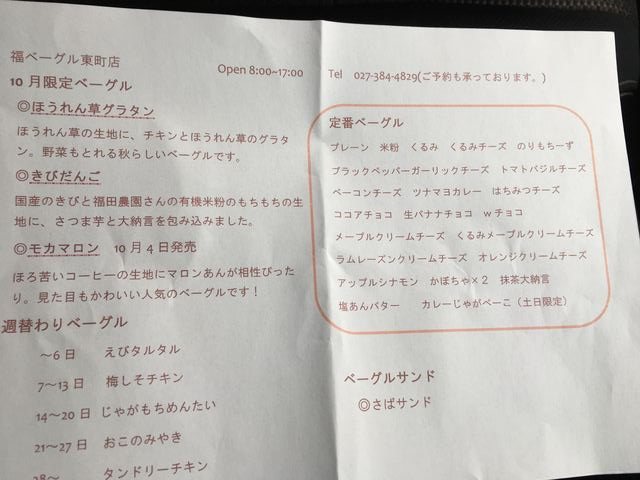 福ベーグル東町店
Open 8:00~17:00 Tel 027-384-4829(ご予約も承っております。)
10月限定ベーグル
◎ほうれん草グラタン
ほうれん草の生地に、チキンとほうれん草のグラタ
ン。野菜もとれる秋らしいベーグルです。
◎きびだんご
国産のきびと福田農園さんの有機米粉のもちもちの生
地に、さつま芋と大納言を包み込みました。
◎モカマロン 10月4日発売
ほろ苦いコーヒーの生地にマロンあんが相性ぴった
り。見た目もかわいい人気のベーグルです！
週替わりベーグル
～6日 えびタルタル
7～13日 梅しそチキン
14～20日 じゃがもちめんたい
21～27日 おこのみやき
28～ タンドリーチキン
定番ベーグル
プレーン 米粉 くるみ くるみチーズ のりもちーず
ブラックペッパーガーリックチーズ トマトバジルチーズ
ベーコンチーズ ツナマヨカレー はちみつチーズ
ココアチョコ 生バナナチョコ wチョコ
メープルクリームチーズ くるみメープルクリームチーズ
ラムレーズンクリームチーズ オレンジクリームチーズ
アップルシナモン かぼちゃ×2 抹茶大納言
塩あんバター カレーじゃがべーこ（土日限定）
ベーグルサンド
◎さばサンド